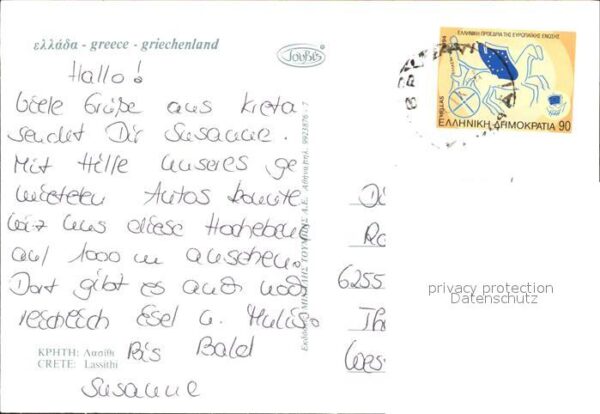 ελλάδα - greece - griechenland
Hallo!
Viele Grüße aus Kreta
sendet Dir Susanne.
Mit Hilfe unseres ge
mieteten Autos konnte
wir uns diese Hocheben
auf 1000 m anschen.
Dort gibt es auch noch
reichlich Esel u.
Bis Bald
Susanne
ΚΡΗΤΗ: Λασίθι
CRETE: Lassithi
ΤΟΥΜΠΗΣ Α.Ε. Αθήνα, τηλ. 9923876 - 7
ΕΛΛΗΝΙΚΗ ΠΡΟΕΔΡΙΑ ΤΗΣ ΕΥΡΩΠΑΪΚΗΣ ΕΝΩΣΗΣ
HELLAS
ΕΛΛΗΝΙΚΗ ΔΗΜΟΚΡΑΤΙΑ 90
6255
privacy protection
Datenschutz